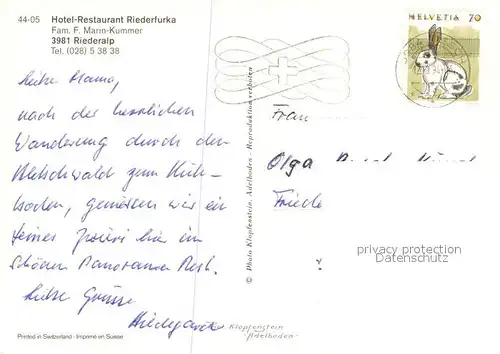 44-05 Hotel-Restaurant Riederfurka
Fam. F. Marin-Kummer
3981 Riederalp
Tel. (028) 5 38 38
HELVETIA 70
Liebe Mama,
nach der herrlichen
Wanderung durch den
Aletschwald zum Hüh-
boden, geniessen wir ein
feines Zvieri hier im
schönen Panorama Rest.
Liebe Grüsse
Hildegard
Frau
Olga
Friede
© Photo Klopfenstein, Adelboden - Reproduktion verboten
Printed in Switzerland - Imprimé en Suisse
Klopfenstein
"Adelboden"
privacy protection
Datenschutz